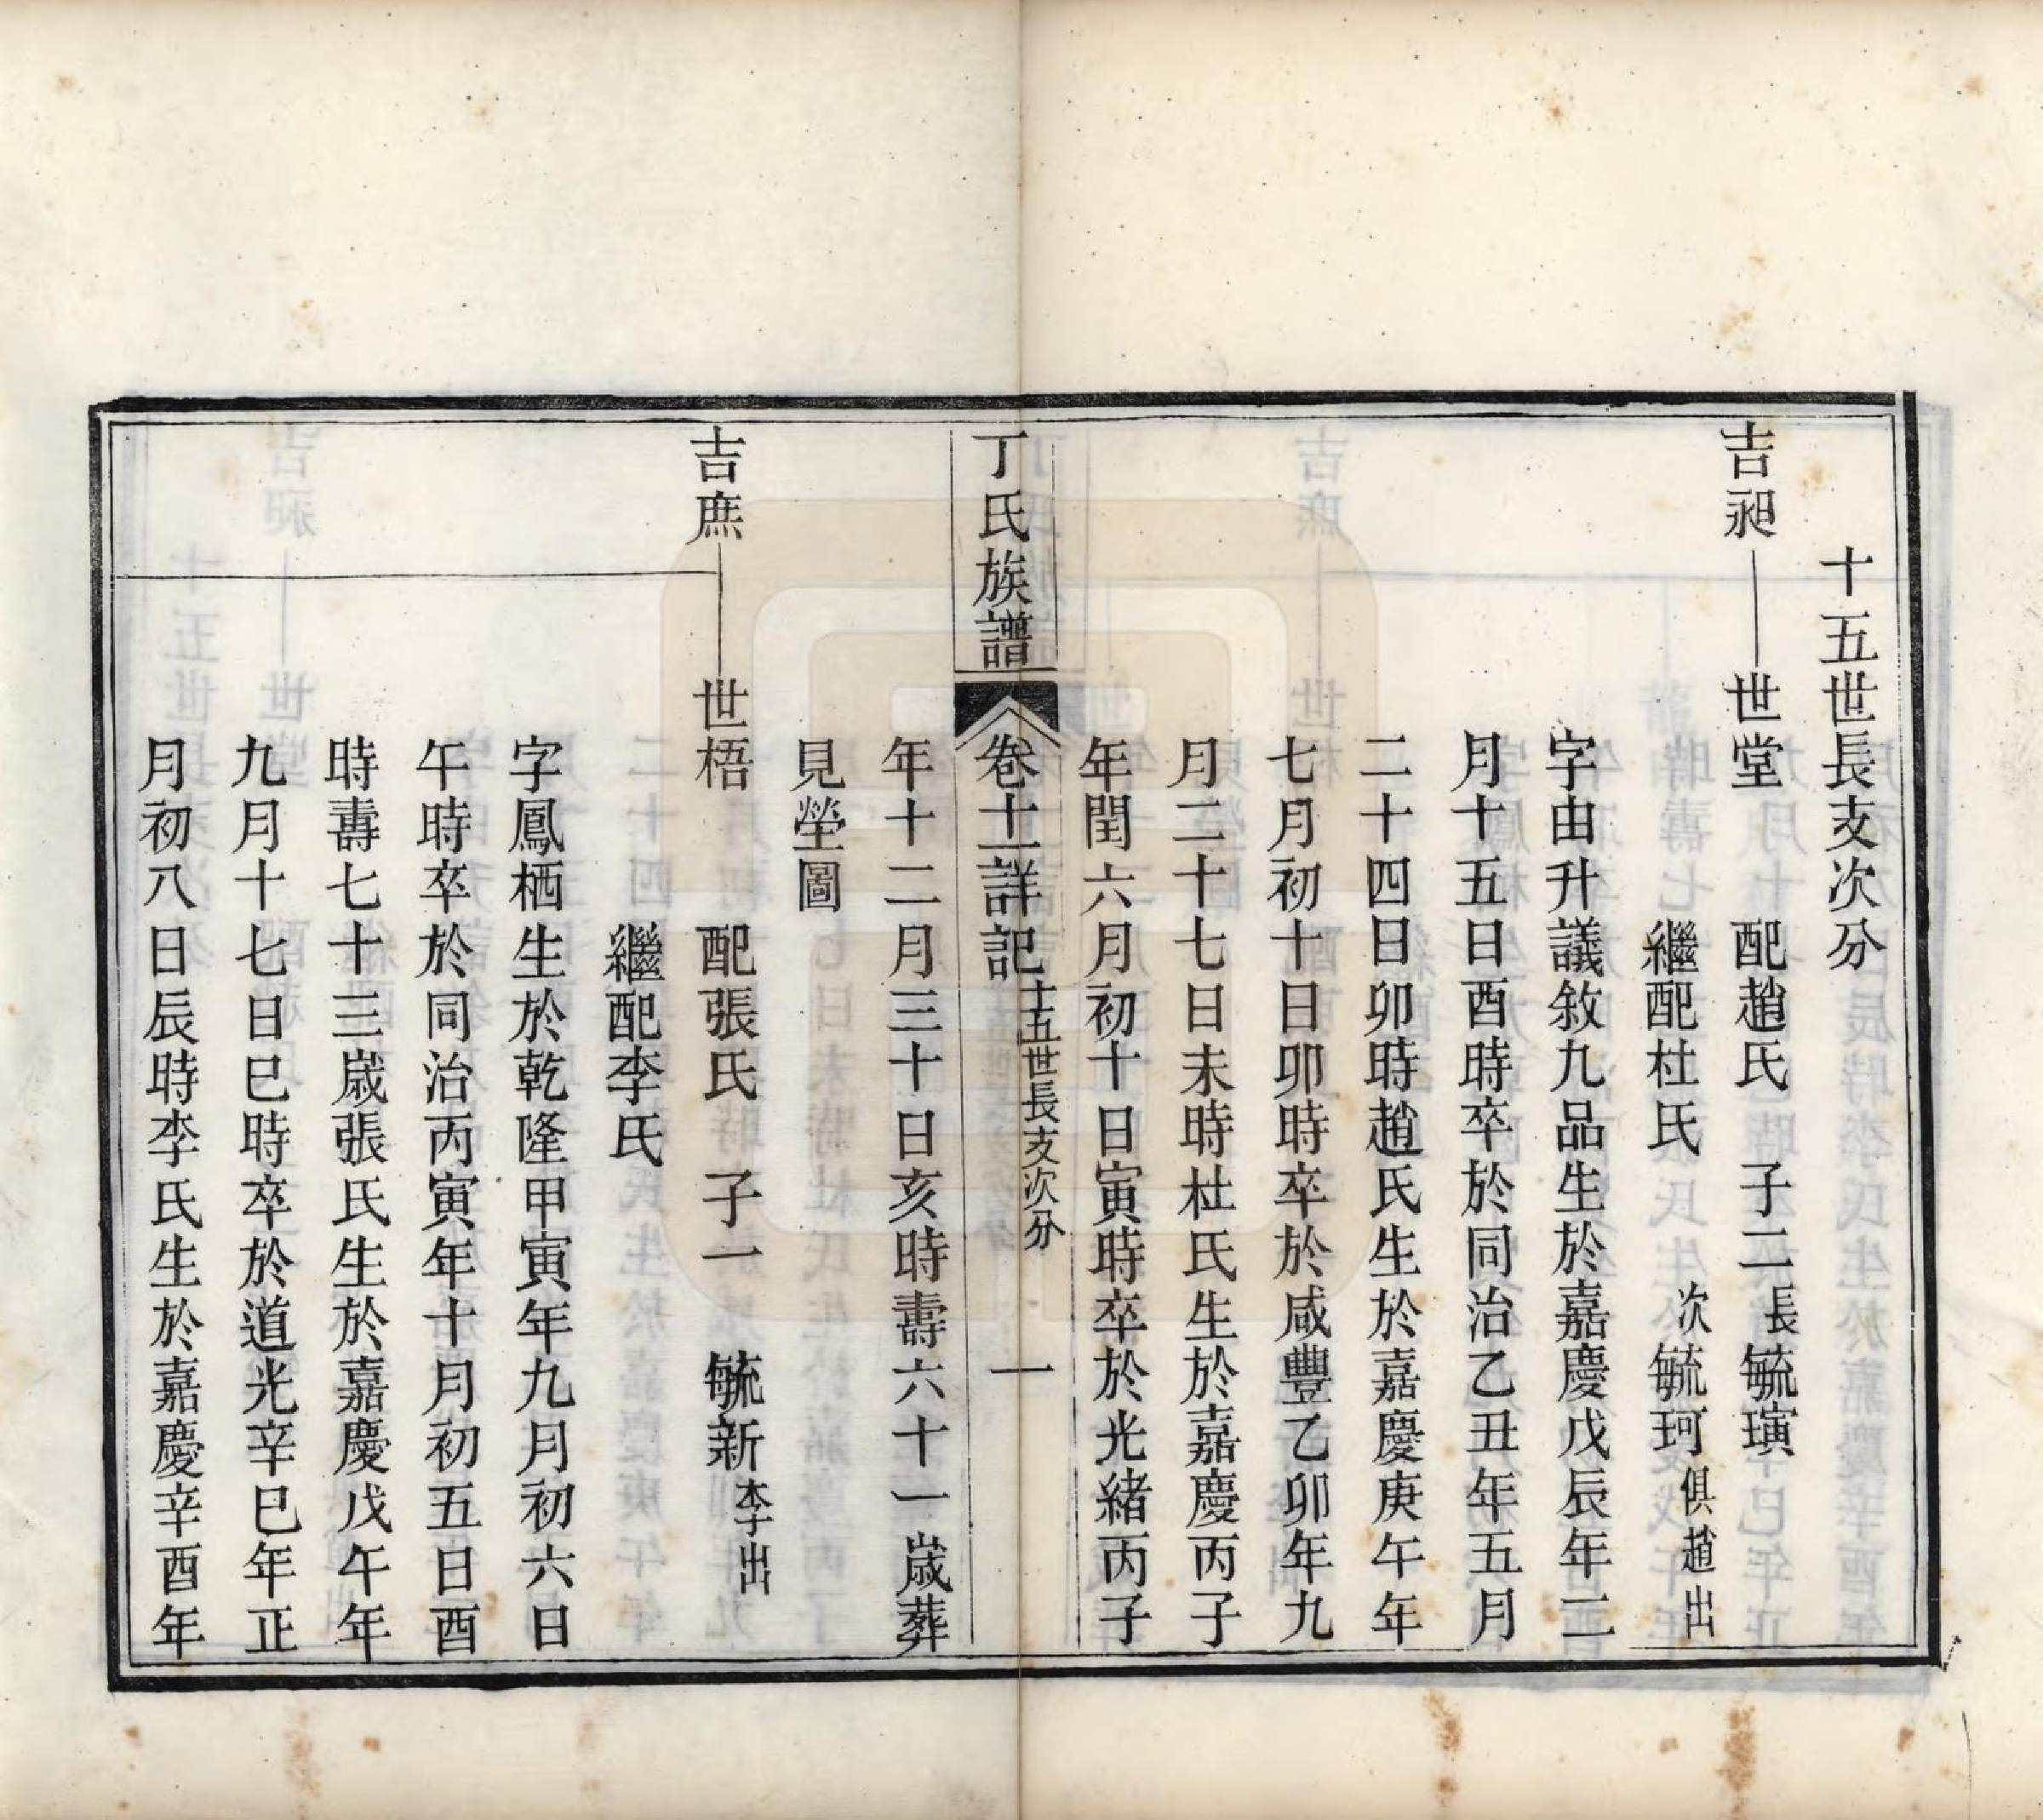 十五世長支次分
吉昶 世堂 配趙氏 子二 長毓璜
繼配杜氏 次毓珂俱趙出
字由升議敘九品生於嘉慶戊辰年二
月十五日酉時卒於同治乙丑年五月
二十四日卯時趙氏生於嘉慶庚午年
七月初十日卯時卒於咸豐乙卯年九
月二十七日未時杜氏生於嘉慶丙子
年閏六月初十日寅時卒於光緒丙子
丁氏族譜 卷十一詳記 十五世長支次分 一
年十二月三十日亥時壽六十一歲葬
見塋圖
吉庶 世梧 配張氏 子一 毓新李出
繼配李氏
字鳳栖生於乾隆甲寅年九月初六日
午時卒於同治丙寅年十月初五日酉
時壽七十三歲張氏生於嘉慶戊午年
九月十七日巳時卒於道光辛巳年正
月初八日辰時李氏生於嘉慶辛酉年